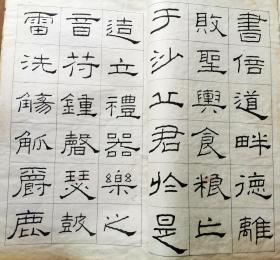 書倍道畔德離
敗聖輿食粮亡
于沙丘君於是
造立禮器樂之
音苻鍾磬瑟鼓
雷洗觴觚爵鹿